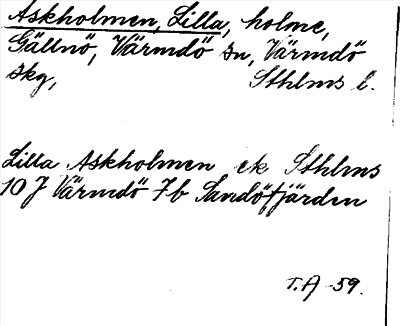 Askholmen, Lilla, holme,
Gällnö, Värmdö sn, Värmdö
skg, Sthlms l.
Lilla Askholmen ek Sthlms
10 J Värmdö 7b Sandöfjärden
T.A -59.